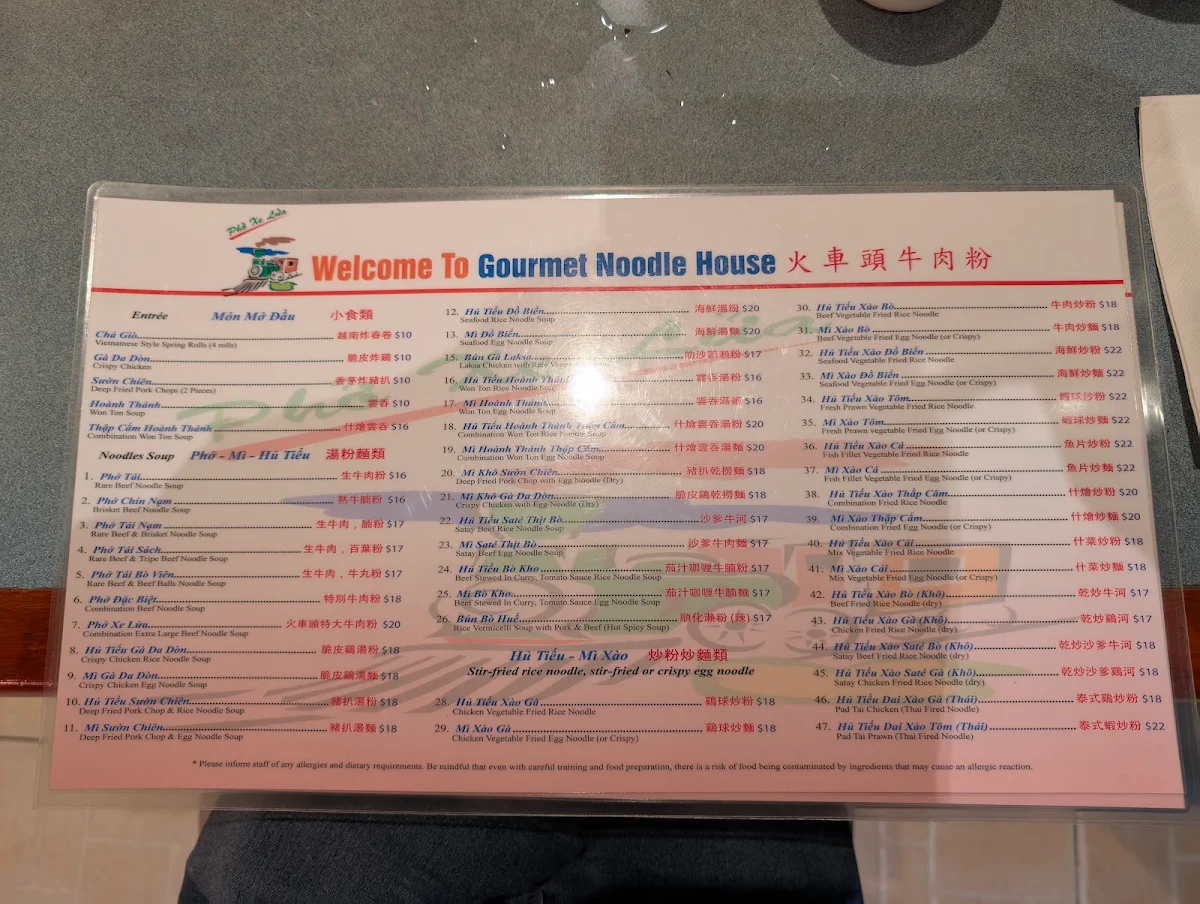 Phở Xe Lửa
Welcome To Gourmet Noodle House 火車頭牛肉粉
Entrée Món Mở Đầu 小食類
Chả Giò 越南炸春卷 $10
Vietnamese Style Spring Rolls (4 rolls)
Gà Da Dòn 脆皮炸鷄 $10
Crispy Chicken
Sườn Chiên 香茅炸豬扒 $10
Deep Fried Pork Chops (2 Pieces)
Hoành Thánh 雲吞 $10
Won Ton Soup
Thập Cẩm Hoành Thánh 什燴雲吞 $16
Combination Won Ton Soup
Noodles Soup Phở - Mì - Hủ Tiếu 湯粉麵類
1. Phở Tái 生牛肉粉 $16
Rare Beef Noodle Soup
2. Phở Chín Nạm 熟牛腩粉 $16
Brisket Beef Noodle Soup
3. Phở Tái Nạm 生牛肉，腩粉 $17
Rare Beef & Brisket Noodle Soup
4. Phở Tái Sách 生牛肉，百葉粉 $17
Rare Beef & Tripe Beef Noodle Soup
5. Phở Tái Bò Viên 生牛肉，牛丸粉 $17
Rare Beef & Beef Balls Noodle Soup
6. Phở Đặc Biệt 特別牛肉粉 $18
Combination Beef Noodle Soup
7. Phở Xe Lửa 火車頭特大牛肉粉 $20
Combination Extra Large Beef Noodle Soup
8. Hủ Tiếu Gà Da Dòn 脆皮鷄湯粉 $18
Crispy Chicken Rice Noodle Soup
9. Mì Gà Da Dòn 脆皮鷄湯麵 $18
Crispy Chicken Egg Noodle Soup
10. Hủ Tiếu Sườn Chiên 豬扒湯粉 $18
Deep Fried Pork Chop & Rice Noodle Soup
11. Mì Sườn Chiên 豬扒湯麵 $18
Deep Fried Pork Chop & Egg Noodle Soup
12. Hủ Tiếu Đồ Biển 海鮮湯粉 $20
Seafood Rice Noodle Soup
13. Mì Đồ Biển 海鮮湯麵 $20
Seafood Egg Noodle Soup
15. Bún Gà Laksa $17
Laksa Chicken with Rice
16. Hủ Tiếu Hoành Thánh 雲吞湯粉 $16
Won Ton Rice Noodle Soup
17. Mì Hoành Thánh 雲吞湯麵 $16
Won Ton Egg Noodle Soup
18. Hủ Tiếu Hoành Thánh Thập Cẩm 什燴雲吞湯粉 $20
Combination Won Ton Rice Noodle Soup
19. Mì Hoành Thánh Thập Cẩm 什燴雲吞湯麵 $20
Combination Won Ton Egg Noodle Soup
20. Mì Khô Sườn Chiên 豬扒乾撈麵 $18
Deep Fried Pork Chop with Egg Noodle (Dry)
21. Mì Khô Gà Da Dòn 脆皮鷄乾撈麵 $18
Crispy Chicken with Egg Noodle (Dry)
22. Hủ Tiếu Saté Thịt Bò 沙爹牛河 $17
Satay Beef Rice Noodle Soup
23. Mì Saté Thịt Bò 沙爹牛肉麵 $17
Satay Beef Egg Noodle Soup
24. Hủ Tiếu Bò Kho 茄汁咖喱牛腩粉 $17
Beef Stewed In Curry, Tomato Sauce Rice Noodle Soup
25. Mì Bò Kho 茄汁咖喱牛腩麵 $17
Beef Stewed In Curry, Tomato Sauce Egg Noodle Soup
26. Bún Bò Huế 順化瀨粉 (辣) $17
Rice Vermicelli Soup with Pork & Beef (Hot Spicy Soup)
Hủ Tiếu - Mì Xào 炒粉炒麵類
Stir-fried rice noodle, stir-fried or crispy egg noodle
28. Hủ Tiếu Xào Gà 鷄球炒粉 $18
Chicken Vegetable Fried Rice Noodle
29. Mì Xào Gà 鷄球炒麵 $18
Chicken Vegetable Fried Egg Noodle (or Crispy)
30. Hủ Tiếu Xào Bò 牛肉炒粉 $18
Beef Vegetable Fried Rice Noodle
31. Mì Xào Bò 牛肉炒麵 $18
Beef Vegetable Fried Egg Noodle (or Crispy)
32. Hủ Tiếu Xào Đồ Biển 海鮮炒粉 $22
Seafood Vegetable Fried Rice Noodle
33. Mì Xào Đồ Biển 海鮮炒麵 $22
Seafood Vegetable Fried Egg Noodle (or Crispy)
34. Hủ Tiếu Xào Tôm 蝦球炒粉 $22
Fresh Prawn Vegetable Fried Rice Noodle
35. Mì Xào Tôm 蝦球炒麵 $22
Fresh Prawn vegetable Fried Egg Noodle (or Crispy)
36. Hủ Tiếu Xào Cá 魚片炒粉 $22
Fish Fillet Vegetable Fried Rice Noodle
37. Mì Xào Cá 魚片炒麵 $22
Fish Fillet Vegetable Fried Egg Noodle (or Crispy)
38. Hủ Tiếu Xào Thập Cẩm 什燴炒粉 $20
Combination Fried Rice Noodle
39. Mì Xào Thập Cẩm 什燴炒麵 $20
Combination Fried Egg Noodle (or Crispy)
40. Hủ Tiếu Xào Cải 什菜炒粉 $18
Mix Vegetable Fried Rice Noodle
41. Mì Xào Cải 什菜炒麵 $18
Mix Vegetable Fried Egg Noodle (or Crispy)
42. Hủ Tiếu Xào Bò (Khô) 乾炒牛河 $17
Beef Fried Rice Noodle (dry)
43. Hủ Tiếu Xào Gà (Khô) 乾炒鷄河 $17
Chicken Fried Rice Noodle (dry)
44. Hủ Tiếu Xào Saté Bò (Khô) 乾炒沙爹牛河 $18
Satay Beef Fried Rice Noodle (dry)
45. Hủ Tiếu Xào Saté Gà (Khô) 乾炒沙爹鷄河 $18
Satay Chicken Fried Rice Noodle (dry)
46. Hủ Tiếu Dai Xào Gà (Thái) 泰式鷄炒粉 $18
Pad Tai Chicken (Thai Fired Noodle)
47. Hủ Tiếu Dai Xào Tôm (Thái) 泰式蝦炒粉 $22
Pad Tai Prawn (Thai Fired Noodle)
* Please inform staff of any allergies and dietary requirements. Be mindful that even with careful training and food preparation, there is a risk of food being contaminated by ingredients that may cause an allergic reaction.